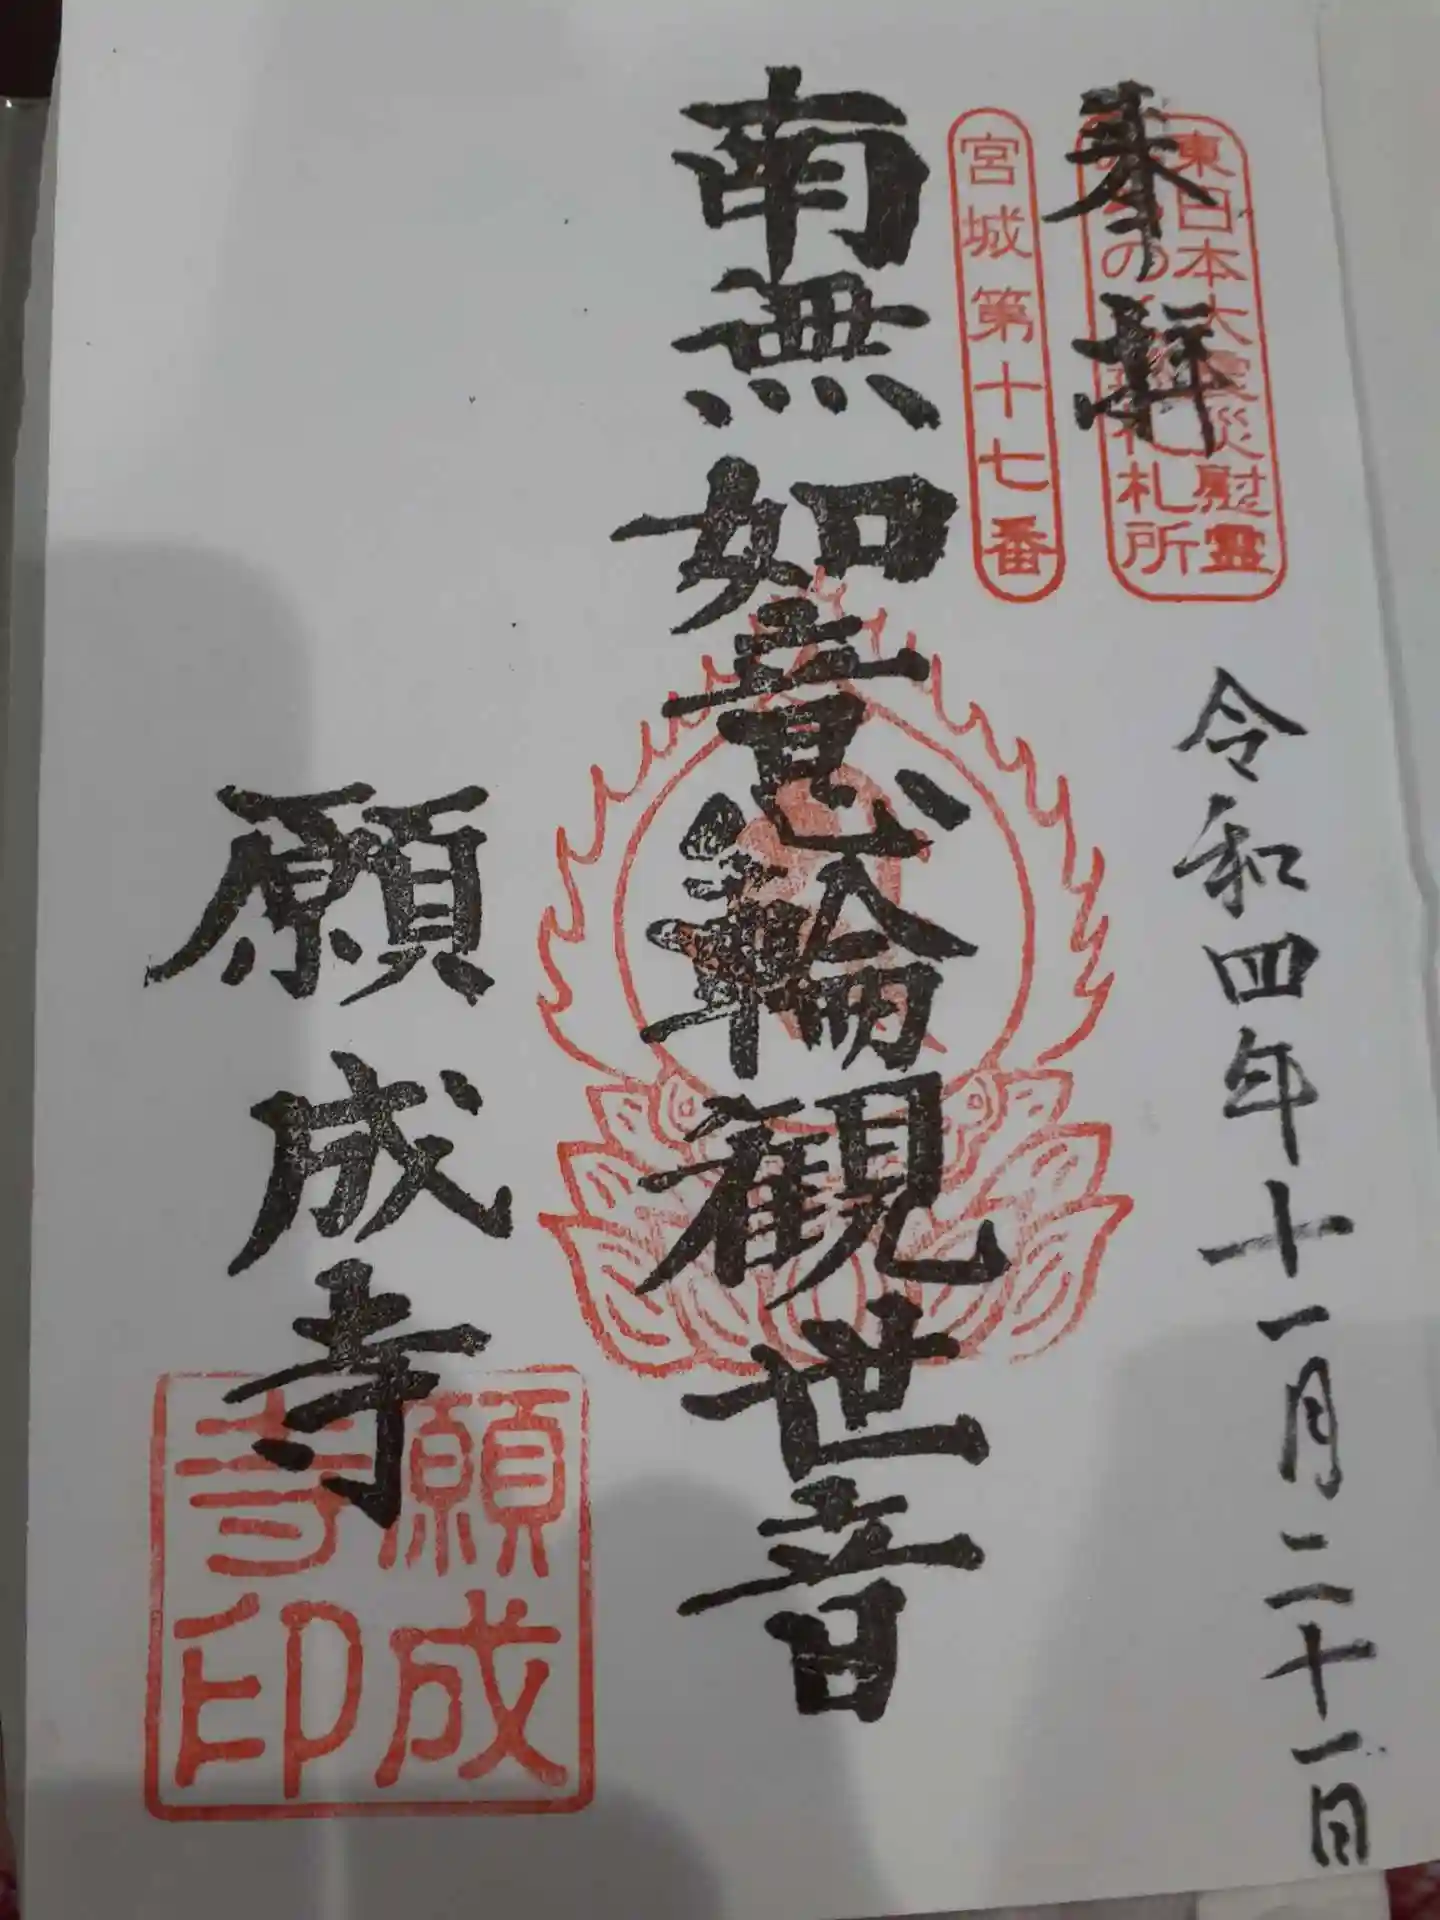 奉拝
東日本大震災慰霊
札所
宮城第十七番
令和四年十一月二十一日
南無如意輪観世音
願成寺
願成
寺印